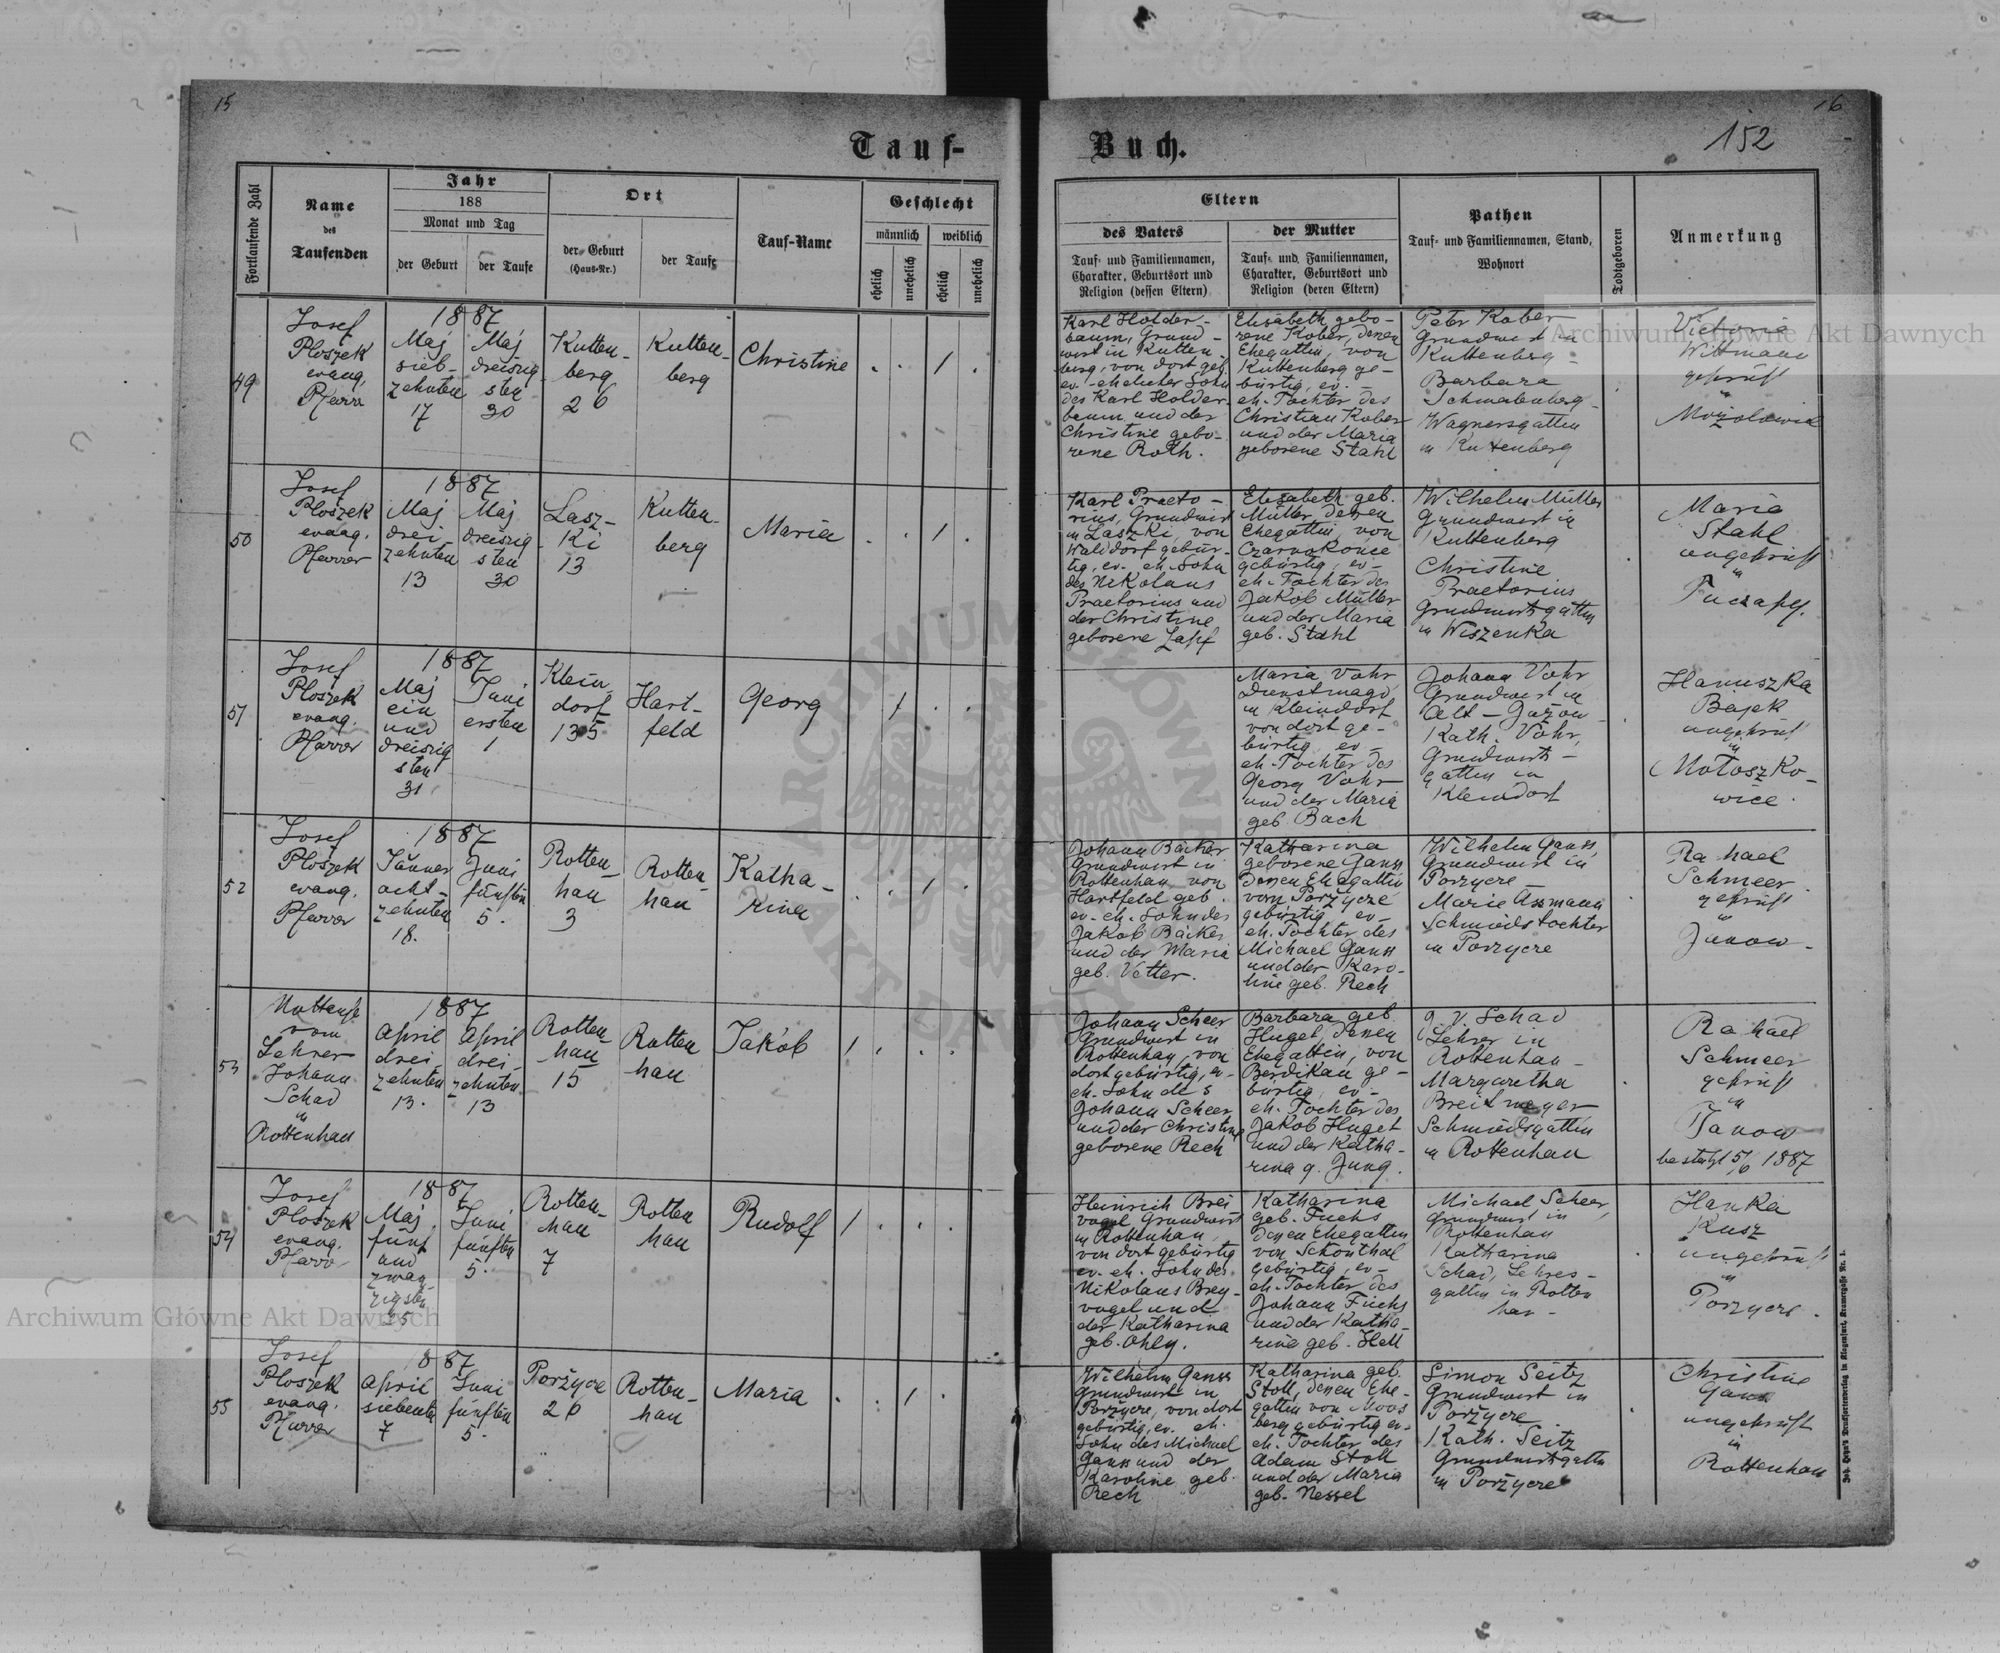 15
16
152
Tauf-
Buch.
Fortlaufende Zahl
Name
des
Taufenden
Jahr
188
Monat und Tag
der Geburt
der Taufe
Ort
der Geburt
(Haus-Nr.)
der Taufe
Tauf-Name
Geschlecht
männlich
weiblich
ehelich
unehelich
ehelich
unehelich
Eltern
des Vaters
Tauf- und Familiennamen,
Charakter, Geburtsort und
Religion (dessen Eltern)
der Mutter
Tauf- und Familiennamen,
Charakter, Geburtsort und
Religion (deren Eltern)
Pathen
Tauf- und Familiennamen, Stand,
Wohnort
Todtgeboren
Anmerkung
49
Josef
Ploszek
evang.
Pfarrer
1887
Maj
sieb-
zehnten
17
Maj
dreiszig-
sten
30
Kutten-
berg
26
Kutten-
berg
Christine
1
Karl Holder-
baum, Grund-
wirt in Kutten-
berg, von dort geb.
ev.- ehelicher Sohn
des Karl Holder-
baum und der
Christine gebo-
rene Roth.
Elisabeth gebo-
rene Kober, denen
Ehegattin, von
Kuttenberg ge-
bürtig, ev.-
eh. Tochter des
Christian Kober
und der Maria
geborene Stahl
Peter Kober
Grundwirt in
Kuttenberg -
Barbara
Schmalenberg-
Wagnersgattin
in Kuttenberg
Victoria
Wittmann
geprüft
in
50
Josef
Ploszek
evang.
Pfarrer
1887
Maj
drei-
zehnten
13
Maj
dreiszig-
sten
30
Lasz-
Ki
13
Kutten-
berg
Maria
1
Karl Praeto-
rius, Grundwirt
in Laszki, von
Walddorf gebür-
tig, ev. eh. Sohn
des Nikolaus
Praetorius und
der Christine
geborene Zapf
Elisabeth geb.
Müller denen
Ehegattin, von
Czarnokonce
gebürtig, ev-
eh. Tochter des
Jakob Müller
und der Maria
geb. Stahl
Wilhelm Müller
Grundwirt in
Kuttenberg
Christine
Praetorius
Grundwirtsgattin
in Wiszenka
Maria
Stahl
ungeprüft
in
51
Josef
Ploszek
evang.
Pfarrer
1887
Maj
ein
und
dreiszig
sten
31
Juni
ersten
1
Klein-
dorf
135
Hart-
feld
Georg
1
Maria Vohr
Dienstmagd
in Kleindorf
von dort ge-
bürtig, ev-
eh. Tochter des
Georg Vohr
und der Maria
geb. Bach
Johann Vohr
Grundwirt in
Alt-Jazow
Kath. Vohr,
Grundwirts-
gattin in
Kleindorf
Hanuszka
Bajek
ungeprüft
in
Mołoszko-
wice.
52
Josef
Ploszek
evang.
Pfarrer
1887
Jänner
acht-
zehnten
18.
Juni
fünften
5.
Rotten-
han
3
Rotten-
han
Katha-
rina
1
Johann Bäcker
Grundwirt in
Rottenhan von
Hartfeld geb.
ev. eh. Sohn des
Jakob Bäcker
und der Maria
geb. Vetter.
Katharina
geborene Ganss
denen Ehegattin
von Porzycze
gebürtig, ev-
eh. Tochter des
Michael Ganss
und der Karo-
line geb. Rech
Wilhelm Ganss,
Grundwirt in
Porzycze
Marie Assmann
Schmiedstochter
in Porzycze
Rahael
Schmeer
geprüft
in
Janow.
53
Nottaufe
vom
Lehrer
Johann
Schad
in
Rottenhan
1887
April
drei-
zehnten
13.
April
drei-
zehnten
13
Rotten-
han
15
Rotten
han
Jakob
1
Johann Scheer
Grundwirt in
Rottenhan, von
dort gebürtig, ev-
eh. Sohn des
Johann Scheer
und der Christine
geborene Rech
Barbara geb.
Huget, denen
Ehegattin, von
Berdikau ge-
bürtig, ev-
eh. Tochter des
Jakob Huget
und der Katha-
rina g. Jung.
Schad
Lehrer in
Rottenhan-
Margaretha
Breitmeyer
Schmiedsgattin
in Rottenhan
Rahael
Schmeer
geprüft
in
Janow
bestätgt 5/6 1887
54
Josef
Ploszek
evang.
Pfarrer
1887
Maj
fünf
und
zwan-
zigsten
25
Juni
fünften
5.
Rotten-
han
7
Rotten
han
Rudolf
1
Heinrich Brei-
vogel Grundwirt
in Rottenhan,
von dort gebürtig
ev. eh. Sohn des
Nikolaus Brey-
vogel und
der Katharina
geb. Ohly.
Katharina
geb. Fuchs
denen Ehegattin
von Schönthal
gebürtig, ev-
eh. Tochter des
Johann Fuchs
und der Katha-
rina geb. Hell
Michael Scheer,
Grundwirt in
Rottenhan
Katharina
Schad, Lehres-
gattin in Rotten
han-
Hanka
Kusz
ungeprüft
in
Porzycze.
55
Josef
Ploszek
evang.
Pfarrer
1887
April
siebenten
7
Juni
fünften
5.
Porzycze
26
Rotten-
han
Maria
1
Wilhelm Ganss
Grundwirt in
Porzycze, von dort
gebürtig, ev. eh.
Sohn des Michael
Ganss und der
Karoline geb.
Rech
Katharina geb.
Stoll, denen Ehe-
gattin von Moos
berg gebürtig ev-
eh. Tochter des
Adam Stoll
und der Maria
geb. Nessel
Simon Seitz
Grundwirt in
Porzycze
Kath. Seitz
Grundwirtsgattin
in Porzycze
Christine
Ganss
ungeprüft
in
Rottenhan
Joh. Heyn's Drucksortenverlag in Klagenfurt, Kramergasse Nr. 1.
Archiwum Główne Akt Dawnych
Archiwum Główne Akt Dawnych
ARCHIWUM GŁÓWNE AKT DAWNYCH